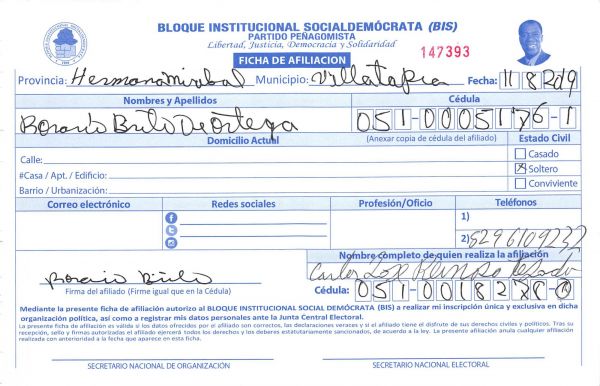 BLOQUE INSTITUCIONAL SOCIALDEMÓCRATA (BIS)
PARTIDO PEÑAGOMISTA
Libertad, Justicia, Democracia y Solidaridad
FICHA DE AFILIACION
147393
Provincia: Hermana mirabal Municipio: Villa tapia Fecha: 11 8 2019
Nombres y Apellidos Cédula
Rosario Brito De ortega 051-0005176-1
Domicilio Actual (Anexar copia de cédula del afiliado) Estado Civil
Calle: Casado
#Casa / Apt. / Edificio: X Soltero
Barrio / Urbanización: Conviviente
Correo electrónico Redes sociales Profesión/Oficio Teléfonos
1)
2) 829 6109237
Nombre completo de quien realiza la afiliación
Rosario Brito Carlos
Firma del afiliado (Firme igual que en la Cédula) Cédula: 051-001827
Mediante la presente ficha de afiliación autorizo al BLOQUE INSTITUCIONAL SOCIAL DEMÓCRATA (BIS) a realizar mi inscripción única y exclusiva en dicha
organización política, así como a registrar mis datos personales ante la Junta Central Electoral.
La presente ficha de afiliación es válida si los datos ofrecidos por el afiliado son correctos, las declaraciones veraces y si el afiliado tiene el disfrute de sus derechos civiles y políticos. Tras su
recepción, sello y firmas autorizadas el afiliado ejercerá todos los derechos y los deberes estatutariamente sancionados, de acuerdo a la ley. La presente afiliación anula cualquier afiliación
realizada con anterioridad a la fecha que aparece en esta ficha.
SECRETARIO NACIONAL DE ORGANIZACIÓN SECRETARIO NACIONAL ELECTORAL